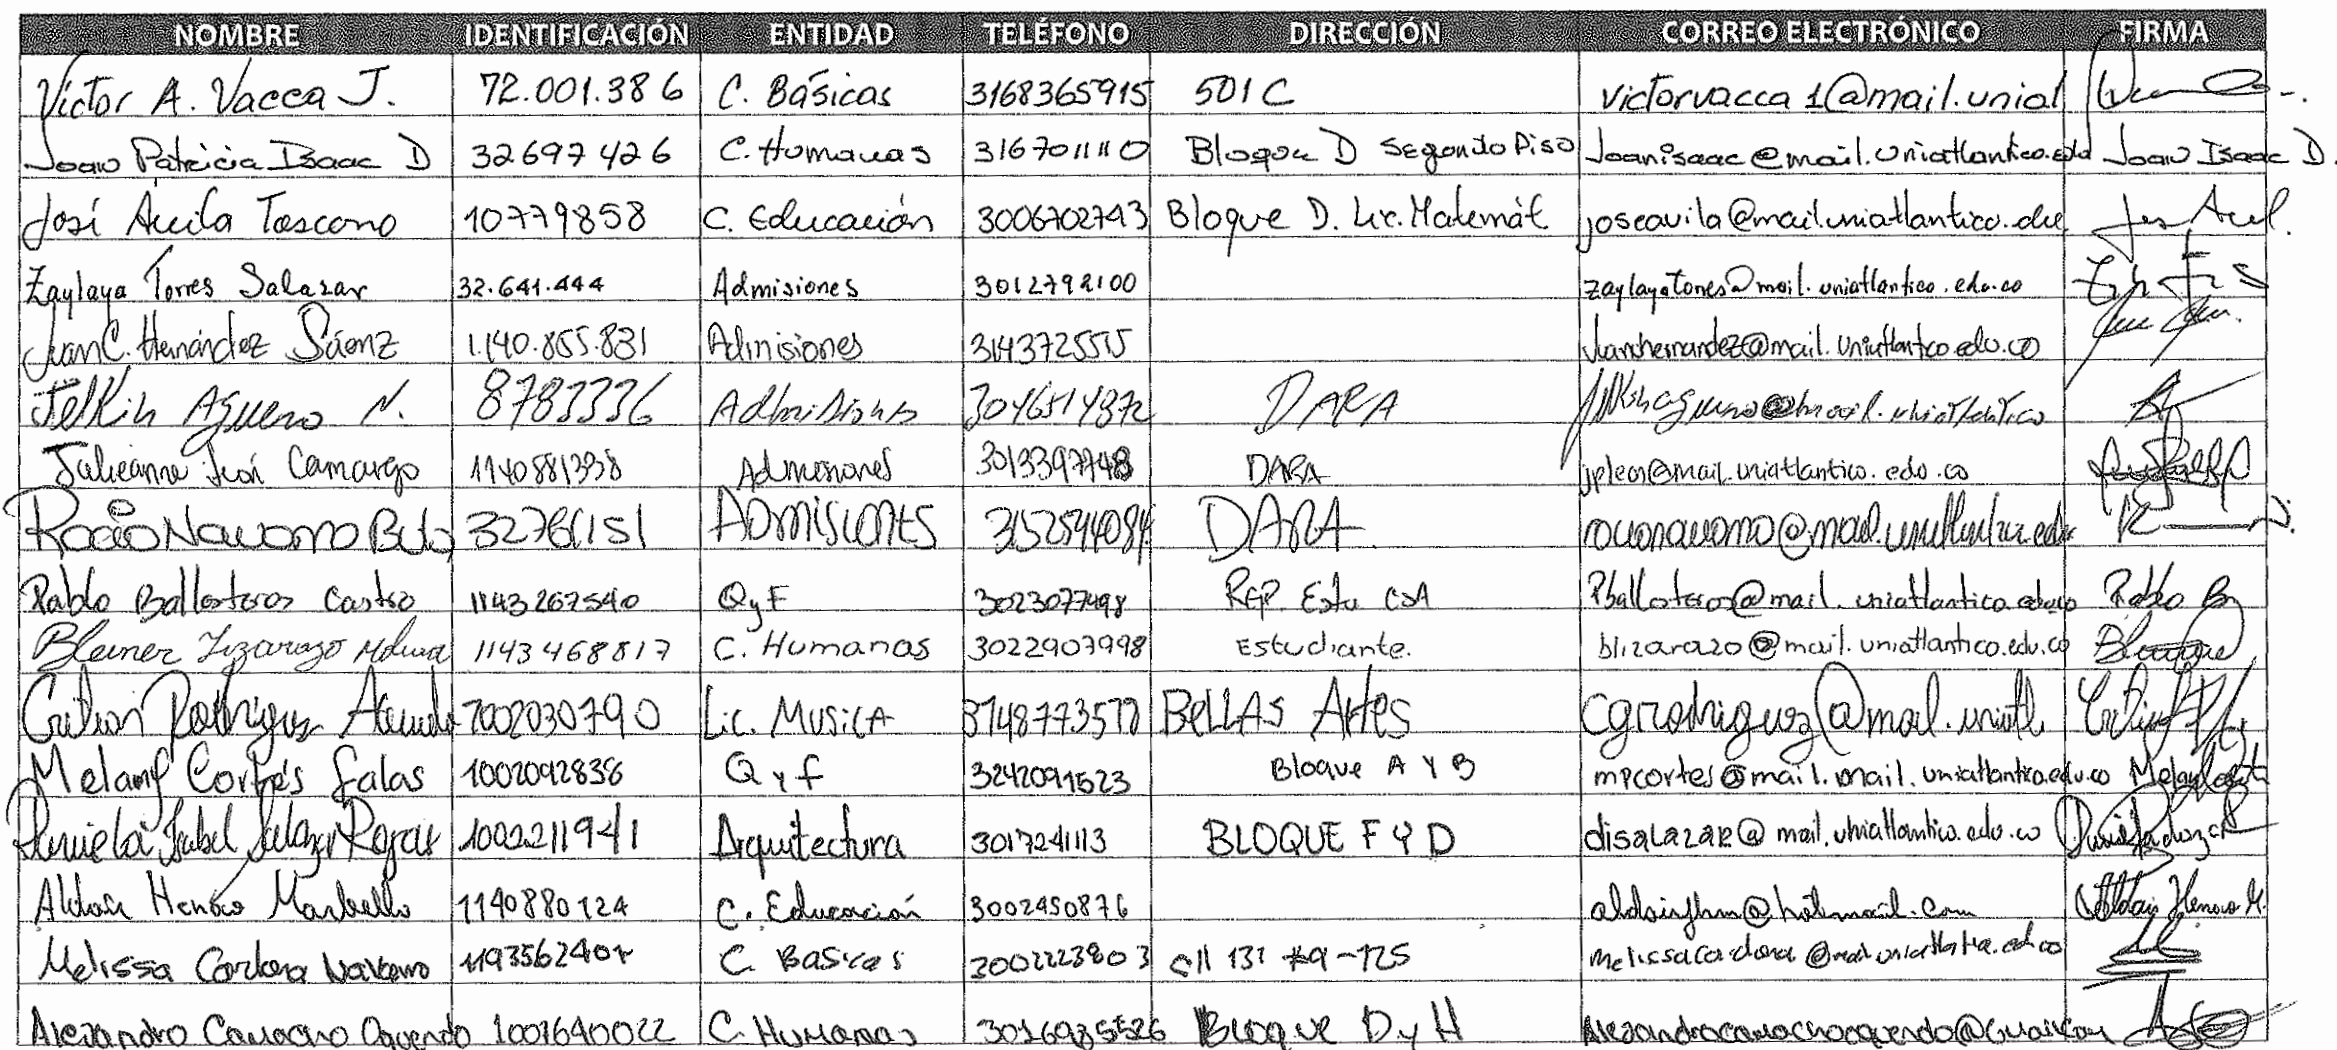 NOMBRE IDENTIFICACIÓN ENTIDAD TELÉFONO DIRECCIÓN CORREO ELECTRÓNICO FIRMA
Víctor A. Vacca J. 72.001.386 C. Básicas 3168365915 501C victorvacca1@mail.unial
Joan Patricia Isaac D 32697426 C. Humanas 3167011110 Bloque D Segundo Piso Joanisaac@mail.uniatlantico.edu Joan Isaac D.
José Avila Toscano 10779858 C. Educación 3006702743 Bloque D. Lic. Matemát joseavila@mail.uniatlantico.edu
Zaylaya Torres Salazar 32.641.444 Admisiones 3012792100 zaylayatorres@mail.uniatlantico.edu.co
Juan C. Hernández Sáenz 1.140.855.831 Admisiones 3143725515 juanhernandez@mail.uniatlantico.edu.co
Jelkin Aguero N. 8783336 Admisiones 3046514872 DARA
Camargo 1140881338 Admisiones DARA jpleon@mail.uniatlantico.edu.co
Rocio Navarro 32766151 ADMISIONES 3152544084 DARA
Pablo Ballesteros Castro 1143267540 QyF 3023077498 Rep. Estu CSA Pballesteros@mail.uniatlantico.edu.co Pablo B
Bleiner Lizarazo Molina 1143468817 C. Humanas 3022907998 Estudiante. blizarazo@mail.uniatlantico.edu.co
Cristian Rodriguez Acevedo 1002030790 Lic. MUSICA BELLAS Artes cgrodriguez@mail.uniatl
Melany Cortés Salas 1002092838 Q y f 3242091523 Bloque A Y B mpcortes@mail.mail.uniatlantico.edu.co
Daniela Isabel Salazar Rojas 1002211941 Arquitectura 3017241113 BLOQUE F Y D disalazar@mail.uniatlantico.edu.co
Aldair Henao Marbello 1140880124 C. Educación 3002450876 aldairjhm@hotmail.com Aldair Henao M.
Melissa Cardona Navarro C. Basicas 3002223803 cll 131 #9-125 melissacardona@mail.uniatlantica.edu.co
Alejandro Camacho Oquendo 1001640022 C. Humanas 3016935526 Bloque D y H